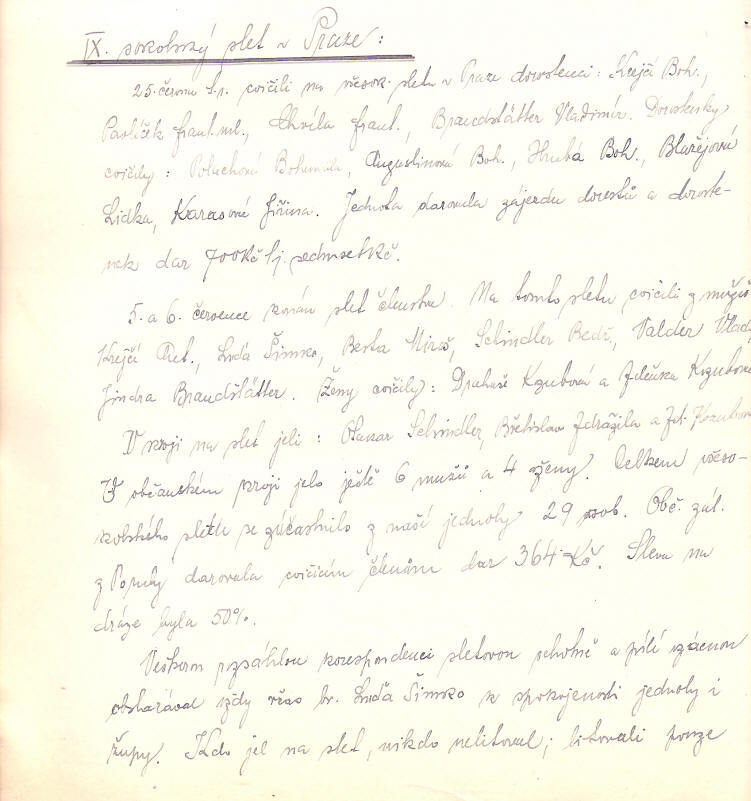 IX. sokolský slet v Praze:
25. června t.r. cvičili na všesok. sletu v Praze dorostenci: Krejčí Boh.,
Pavlíček Frant. ml., Chvíla Frant., Brandstätter Vladimír. Dorostenky
cvičily: Poluchová Bohumila, Augustinová Boh., Hrubá Boh., Blažejová
Lidka, Karasová Jiřina. Jednota darovala zájezdu dorostů a doroste-
nek dar 700Kč tj. sedmsetKč.
5. a 6. července konán slet členstva. Na tomto sletu cvičili z mužů
Krejčí Ant., Luďa Šimko, Berta Miroš, Schindler Bedř., Valder Vlad.,
Jindra Brandstätter. Ženy cvičily: Drahuše Kozubová a Zdeňka Kozubová
V kroji na slet jeli: Otakar Schindler, Břetislav Zdražila a Zd. Kozubová
V občanském kroji jelo ještě 6 mužů a 4 ženy. Celkem všeso-
kolského sletu se zúčastnilo z naší jednoty 29 osob. Obč. zál.
z Poruby darovala cvičícím členům dar 364 Kč. Sleva na
dráze byla 50%.
Veškerou rozsáhlou korespondenci sletovou ochotně a pílí vzácnou
obstarával vždy včas br. Luďa Šimko k spokojenosti jednoty i
župy. Kdo jel na slet, nikdo nelitoval; litovali pouze